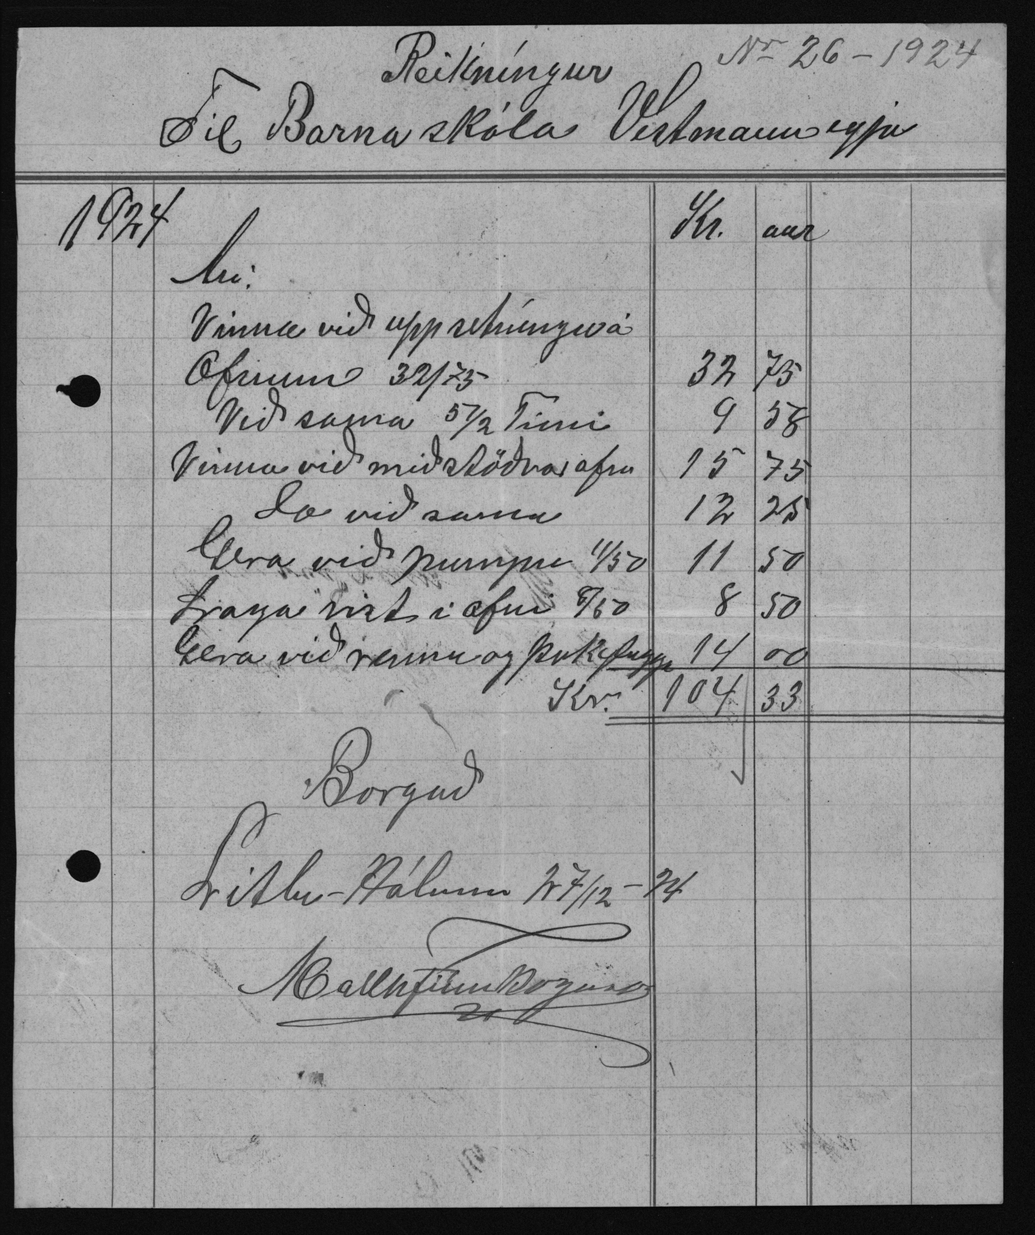 Nr 26 - 1924
Reikníngur
Til Barnaskóla Vestmannaeyja
1924
Kr. aur
An:
Vinna við uppsetníngu á
Ofnum 32/75 32 75
Við sama 5 1/2 Tími 9 58
Vinna við miðstöðvar ofna 15 75
Do við sama 12 25
Gera við pumpu 11/50 11 50
Draga rist i ofni 8/50 8 50
Gera við rennu og 14 00
Kr. 104 33
Borgað
Litlu-Hólum 27/12-24